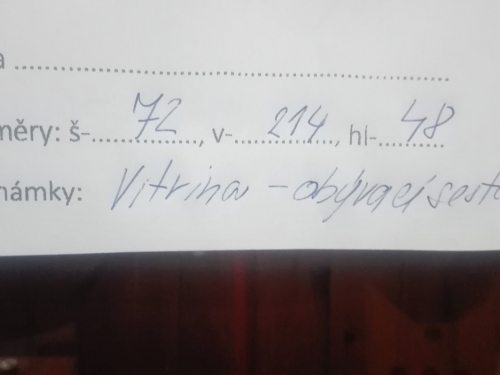 a ........................................................
měry: š- 72, v- 214, hl- 48
námky: Vitrina - obývací sest